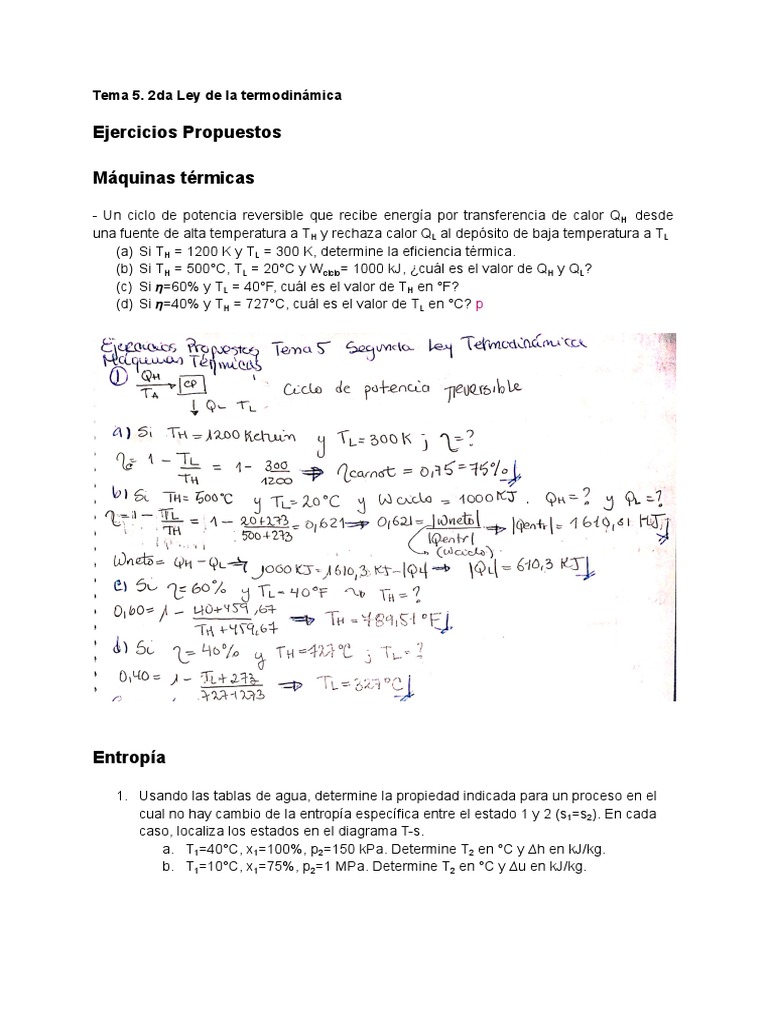 Tema 5. 2da Ley de la termodinámica
Ejercicios Propuestos
Máquinas térmicas
- Un ciclo de potencia reversible que recibe energía por transferencia de calor QH desde
una fuente de alta temperatura a TH y rechaza calor QL al depósito de baja temperatura a TL
(a) Si TH = 1200 K y TL = 300 K, determine la eficiencia térmica.
(b) Si TH = 500°C, TL = 20°C y Wciclo= 1000 kJ, ¿cuál es el valor de QH y QL?
(c) Si η=60% y TL = 40°F, cuál es el valor de TH en °F?
(d) Si η=40% y TH = 727°C, cuál es el valor de TL en °C? p
Ejercicios Propuestos Tema 5 Segunda Ley Termodinámica
Máquinas Térmicas
① QH CP Ciclo de potencia reversible
TA
↓ QL TL
a) Si TH = 1200 Kelvin y TL = 300 K ; η = ?
η = 1 - TL/TH = 1 - 300/1200 ⇒ ηcarnot = 0,75 = 75%
b) Si TH = 500°C y TL = 20°C y Wciclo = 1000 KJ. QH = ? y QL = ?
η = 1 - TL/TH = 1 - (20+273)/(500+273) = 0,621 ⇒ 0,621 = |Wneto|/|Qentr| ⇒ |Qentr| = 1610,31 KJ
(Wciclo)
Wneto = QH - QL → 1000 KJ = 1610,3 KJ - |QL| ⇒ |QL| = 610,3 KJ
c) Si η = 60% y TL = 40°F TH = ?
0,60 = 1 - (40+459,67)/(TH+459,67) ⇒ TH = 789,51°F
d) Si η = 40% y TH = 727°C ; TL = ?
0,40 = 1 - (TL+273)/(727+273) ⇒ TL = 327°C
Entropía
1. Usando las tablas de agua, determine la propiedad indicada para un proceso en el
cual no hay cambio de la entropía específica entre el estado 1 y 2 (s1=s2). En cada
caso, localiza los estados en el diagrama T-s.
a. T1=40°C, x1=100%, p2=150 kPa. Determine T2 en °C y Δh en kJ/kg.
b. T1=10°C, x1=75%, p2=1 MPa. Determine T2 en °C y Δu en kJ/kg.